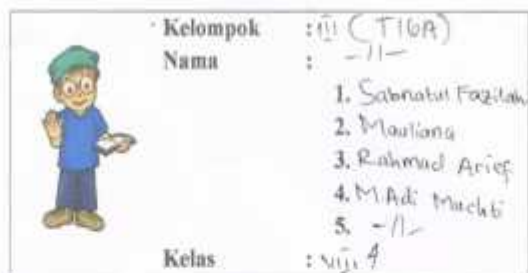 Kelompok : iii (TIGA)
Nama : -//-
1. Sabnatul Fazilah
2. Mauliana
3. Rahmad Arief
4. M.Adi Muchti
5. -//-
Kelas : viii 4